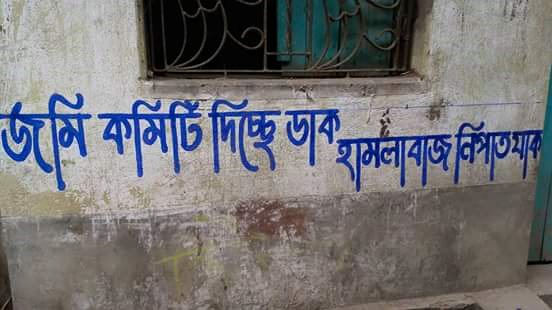 জমি কমিটি দিচ্ছে ডাক
হামলাবাজ নিপাত যাক